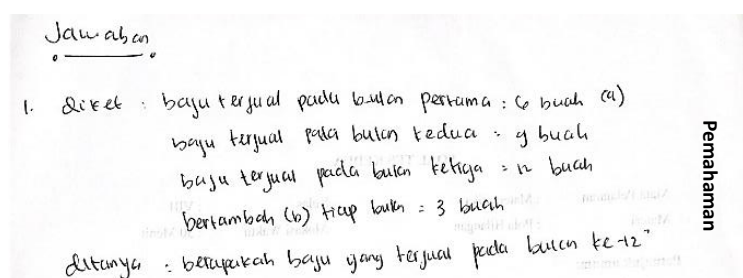 Jawaban
1. Diket : baju terjual pada bulan pertama : 6 buah (a)
baju terjual pada bulan kedua = 9 buah
baju terjual pada bulan ketiga = 12 buah
bertambah (b) tiap bulan = 3 buah
ditanya : berapakah baju yang terjual pada bulan ke-12
Pemahaman